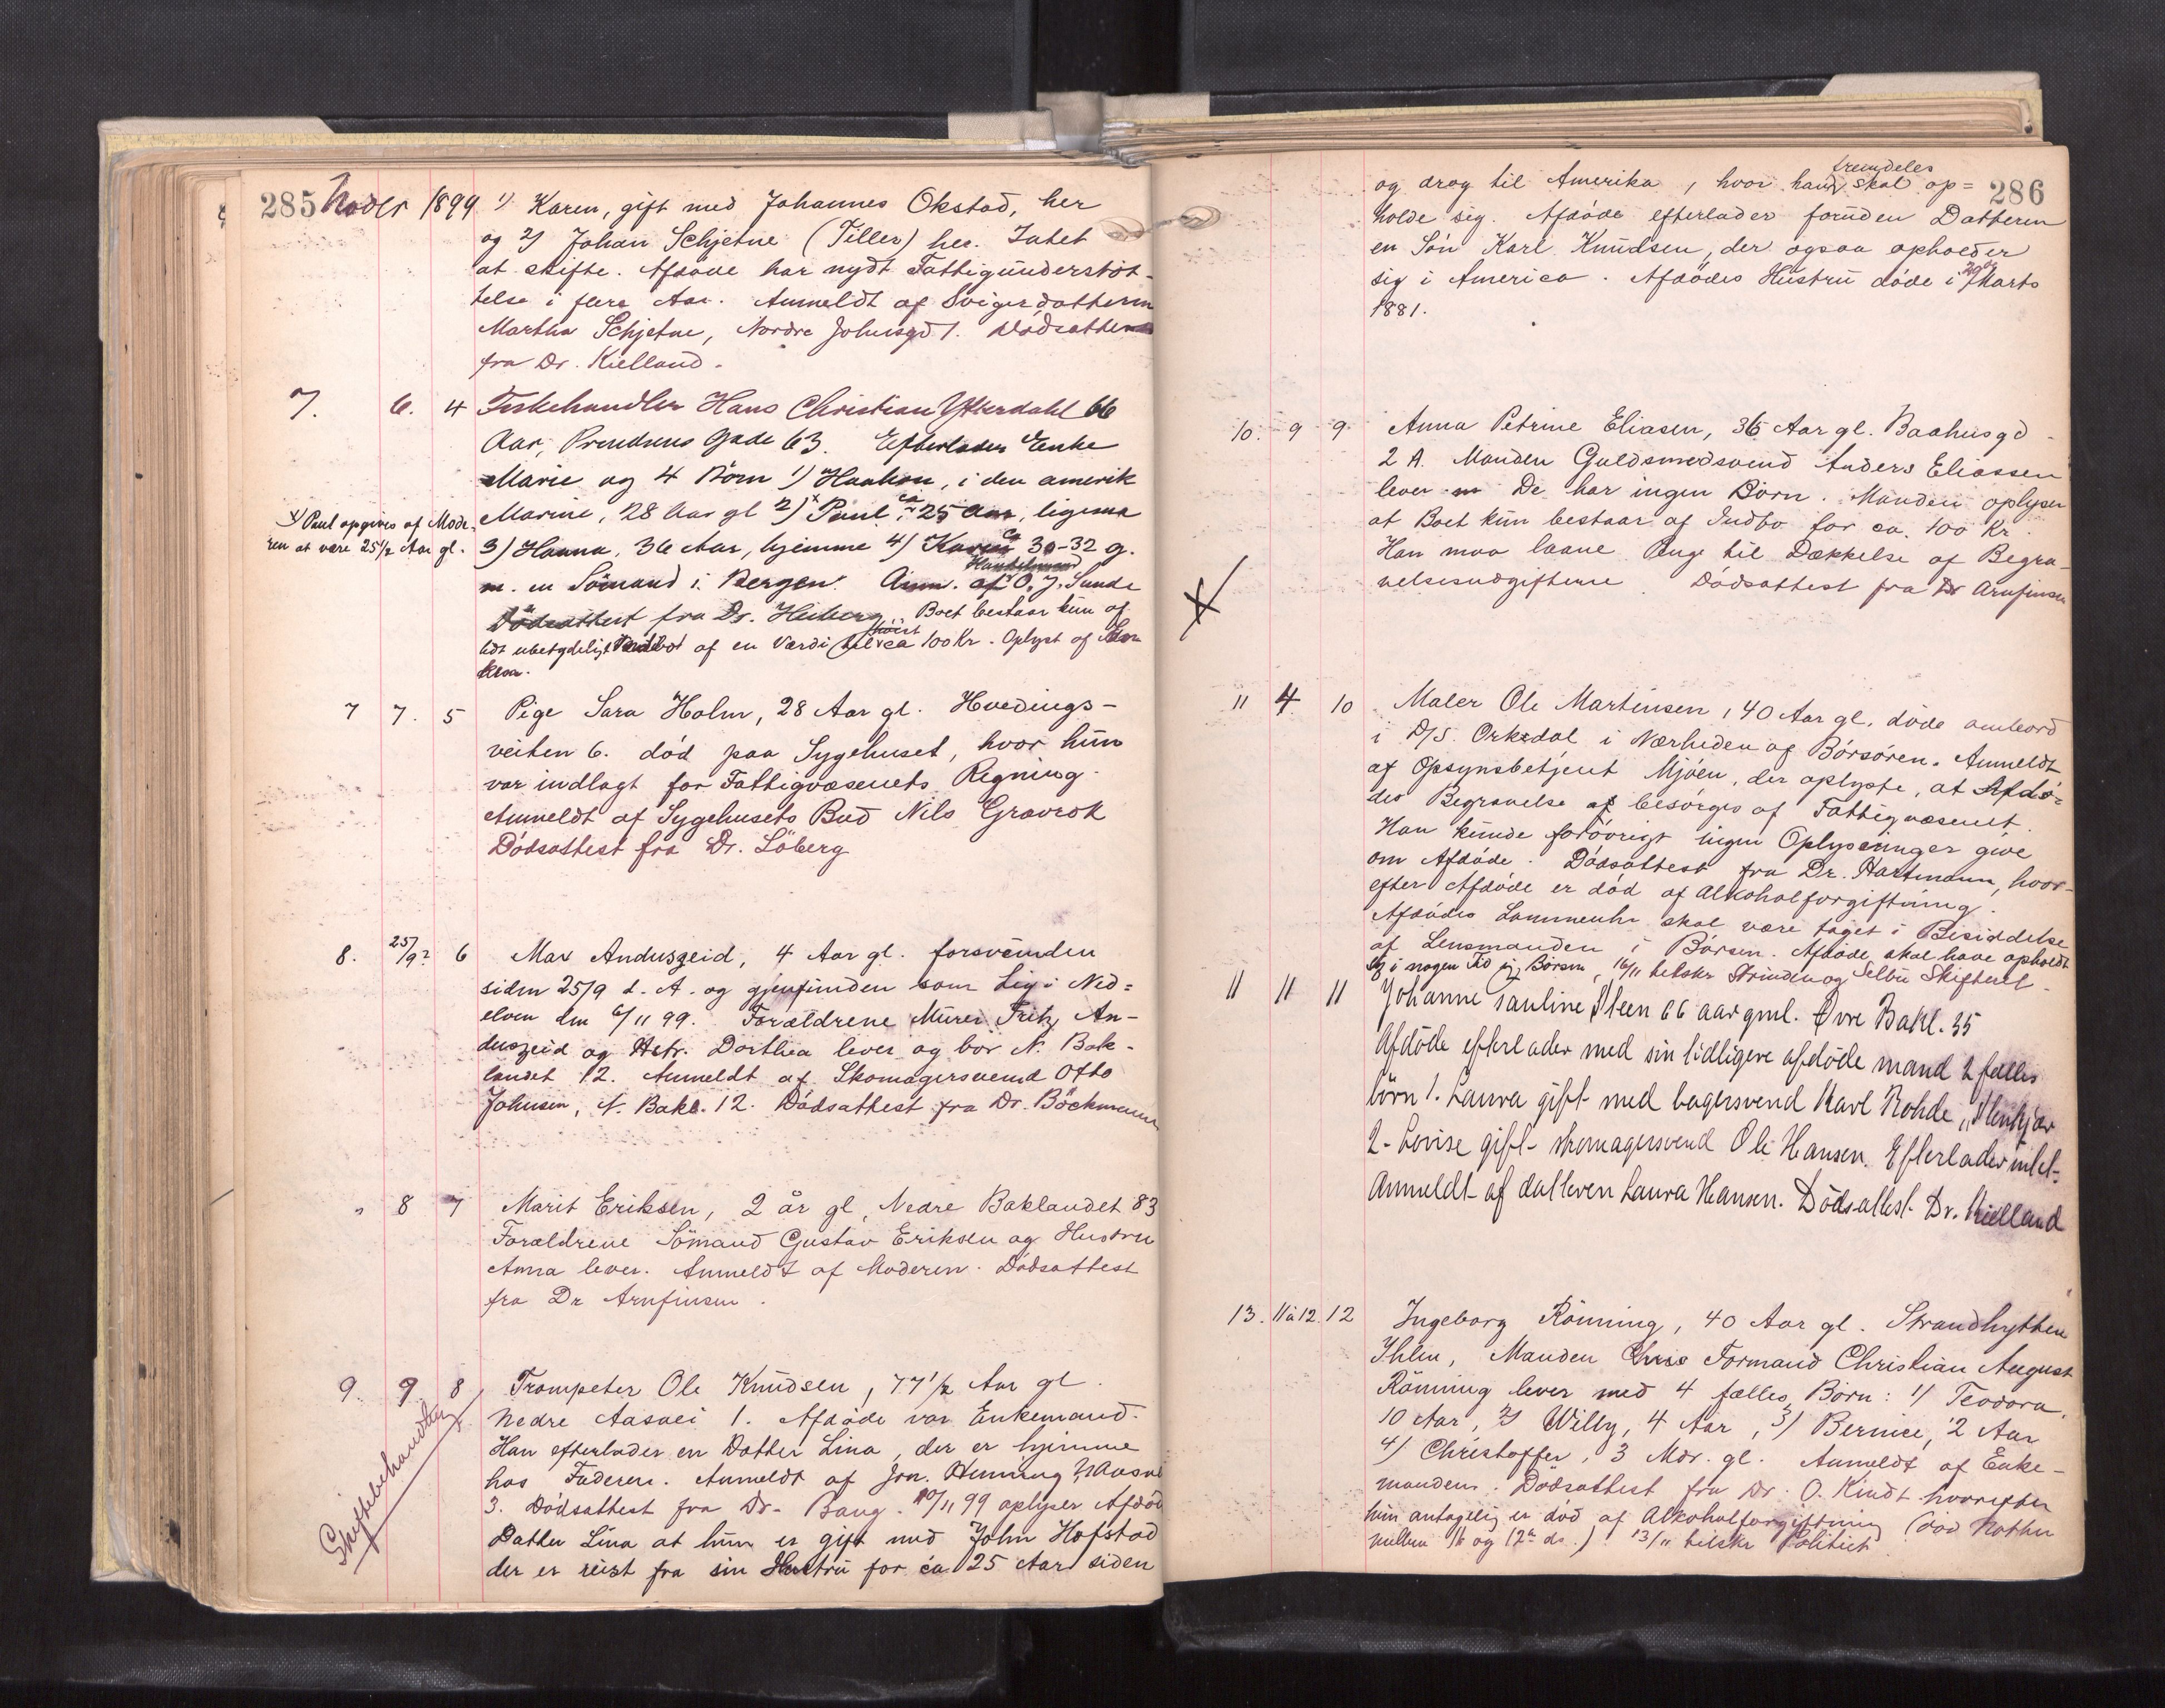 285 Novbr 1899 1) Karen, gift med Johannes Okstad, her
og 2) Johan Schjetne (Tiller) her. Intet
at skifte. Afdøde har nydt Fattigunderstöt-
telse i flere Aar. Anmeldt af Svigerdatteren
Martha Schjetne, Nordre Johnsgd 1. Dödsattest
fra Dr. Kielland.
7. 6. 4 Fiskehandler Hans Christian Ytterdahl 66
Aar, Prindsens Gade 63. Efterlader Enke
Marie og 4 Börn 1) Haakon, i den amerik
Marine, 28 Aar gl 2) x Paul, ca 25 Aar, ligesaa
x) Paul opgives af Mode-
ren at være 25 1/2 Aar gl.
3) Hanna, 36 Aar, hjemme 4) Karen ca 30-32 g.
m. en Sömand i Bergen. Anm. af O. J. Sunde
Dödsattest fra Dr. Heiberg. Boet bestaar kun af
lidt ubetydeligt Indbo af en Værdi höist ca 100 Kr. Oplyst af
7 7. 5 Pige Sara Holm, 28 Aar gl. Hvedings-
veiten 6. död paa Sygehuset, hvor hun
var indlagt for Fattigvæsenets Regning.
Anmeldt af Sygehusets Bud Nils Gravrok
Dödsattest fra Dr. Löberg
8. 25/9? 6 Max Anduszeid, 4 Aar gl. forsvunden
siden 25/9 d. A. og gjenfunden som Lig i Nid=
elven den 6/11 99. Forældrene Murer Fritz An-
duszeid og Hstr. Dorthea lever og bor N. Bak-
landet 12. Anmeldt af Skomagersvend Otto
Johnsen, N. Bakl. 12. Dödsattest fra Dr. Böckmann
" 8 7 Marit Eriksen, 2 år gl, Nedre Baklandet 83
Forældrene Sömand Gustav Eriksen og Hustru
Anna lever. Anmeldt af Moderen. Dödsattest
fra Dr Arnfinsen.
9. 9. 8 Trompeter Ole Knudsen, 77 1/2 Aar gl.
Nedre Aasvei 1. Afdöde var Enkemand.
Han efterlader en Datter Lina, der er hjemme
hos Faderen. Anmeldt af Jrn. Henning
3. Dödsattest fra Dr. Bang. 10/11 99 oplyser Afdöd
Datter Lina at hun er gift med John Hofstad
der er reist fra sin Hustru for ca 25 Aar siden
Skiftebehandles
286
og drog til Amerika, hvor han fremdeles skal op=
holde sig. Afdöde efterlader foruden Datteren
en Sön Karl Knudsen, der ogsaa opholder
sig i America. Afdödes Hustru döde i Marts
1881.
10. 9 9. Anna Petrine Eliasen, 36 Aar gl. Baahusgd
2 A. Manden Guldsmedsvend Anders Eliassen
lever. De har ingen Börn. Manden oplyser
at Boet kun bestaar af Indbo for ca. 100 Kr.
Han maa laane Penge til Dækkelse af Begra-
velsesudgifterne. Dödsattest fra Dr Arnfinsen
11 4. 10 Maler Ole Martinsen, 40 Aar gl. döde ombord
i D/S. Orkedal i Nærheden af Börsören. Anmeldt
af Opsynsbetjent Mjöen, der oplyste, at Afdö-
des Begravelse besörges af Fattigvæsenet.
Han kunde forövrigt ingen Oplysninger give
om Afdöde. Dödsattest fra Dr. Hartmann, hvor-
efter Afdöde er död af Alkoholforgiftning.
Afdödes Lommeuhr skal være taget i Besiddelse
af Lensmanden i Börsen. Afdöde skal have opholdt
sig i nogen Tid i Börsen, 16/11 tilskr Strinden og Selbu Skifteret.
11 11 11 Johanne Pauline Steen 66 aar gml. Øvre Bakl. 35
Afdöde efterlader med sin tidligere afdöde mand 2 fælles
börn 1. Laura gift med bagersvend Karl Rohde, Stenkjær
2- Lovise gift skomagersvend Ole Hansen. Efterlader intet-
Anmeldt af datteren Laura Hansen. Dödsattest Dr. Kielland
13. 11 à 12. 12 Ingeborg Rönning, 40 Aar gl. Strandhytten
Ihlen, Manden Formand Christian August
Rönning lever med 4 fælles Börn: 1) Teodora,
10 Aar, 2) Willy, 4 Aar, 3) Bernice, 2 Aar
4) Christoffer, 3 Mdr. gl. Anmeldt af Enke-
manden. Dödsattest fra Dr. O. Kindt hvorefter
hun antagelig er död af Alkoholforgiftning (död Natten
mellem 11 og 12te ds.) 13/11 tilskr Politiet